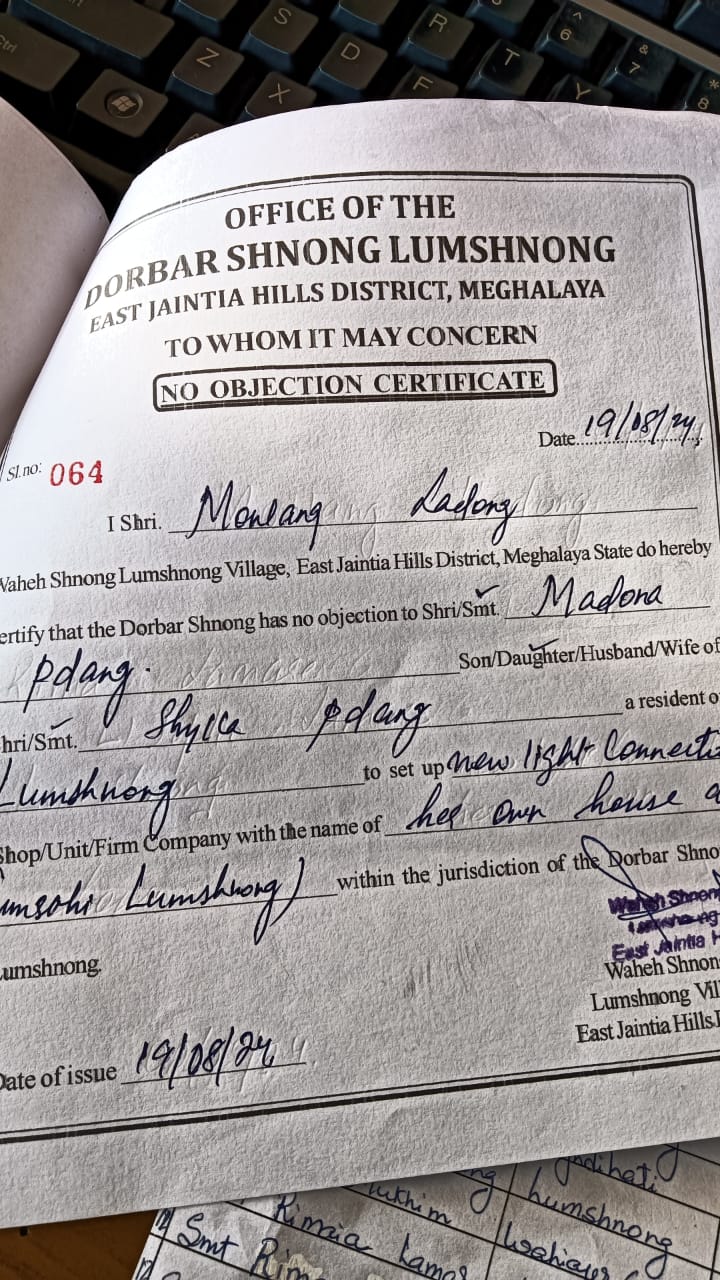 S
R
^
6
&
7
*
8
Ctrl
Z
D
T
X
F
Y
OFFICE OF THE
DORBAR SHNONG LUMSHNONG
EAST JAINTIA HILLS DISTRICT, MEGHALAYA
TO WHOM IT MAY CONCERN
NO OBJECTION CERTIFICATE
Date 19/08/24
Sl.no: 064
I Shri. Monlang Ladong
Waheh Shnong Lumshnong Village, East Jaintia Hills District, Meghalaya State do hereby
ertify that the Dorbar Shnong has no objection to Shri/Smt. Madona
Pdang. Son/Daughter/Husband/Wife of
hri/Smt. Shylla Pdang a resident o
Lumshnong to set up new light Connecti
Shop/Unit/Firm Company with the name of her own house a
umsohi Lumshnong) within the jurisdiction of the Dorbar Shno
umshnong.
Waheh Shnon
East Jaintia H
Waheh Shnon
Lumshnong Vil
East Jaintia Hills
Date of issue 19/08/24
lumshnong
Rimaia Lamar
Smt